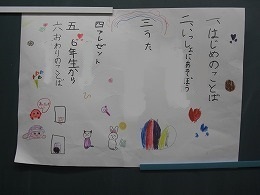 一、はじめのことば
二、いっしょにあそぼう
三、うた
四 プレゼント
五 6年生から
六 おわりのことば